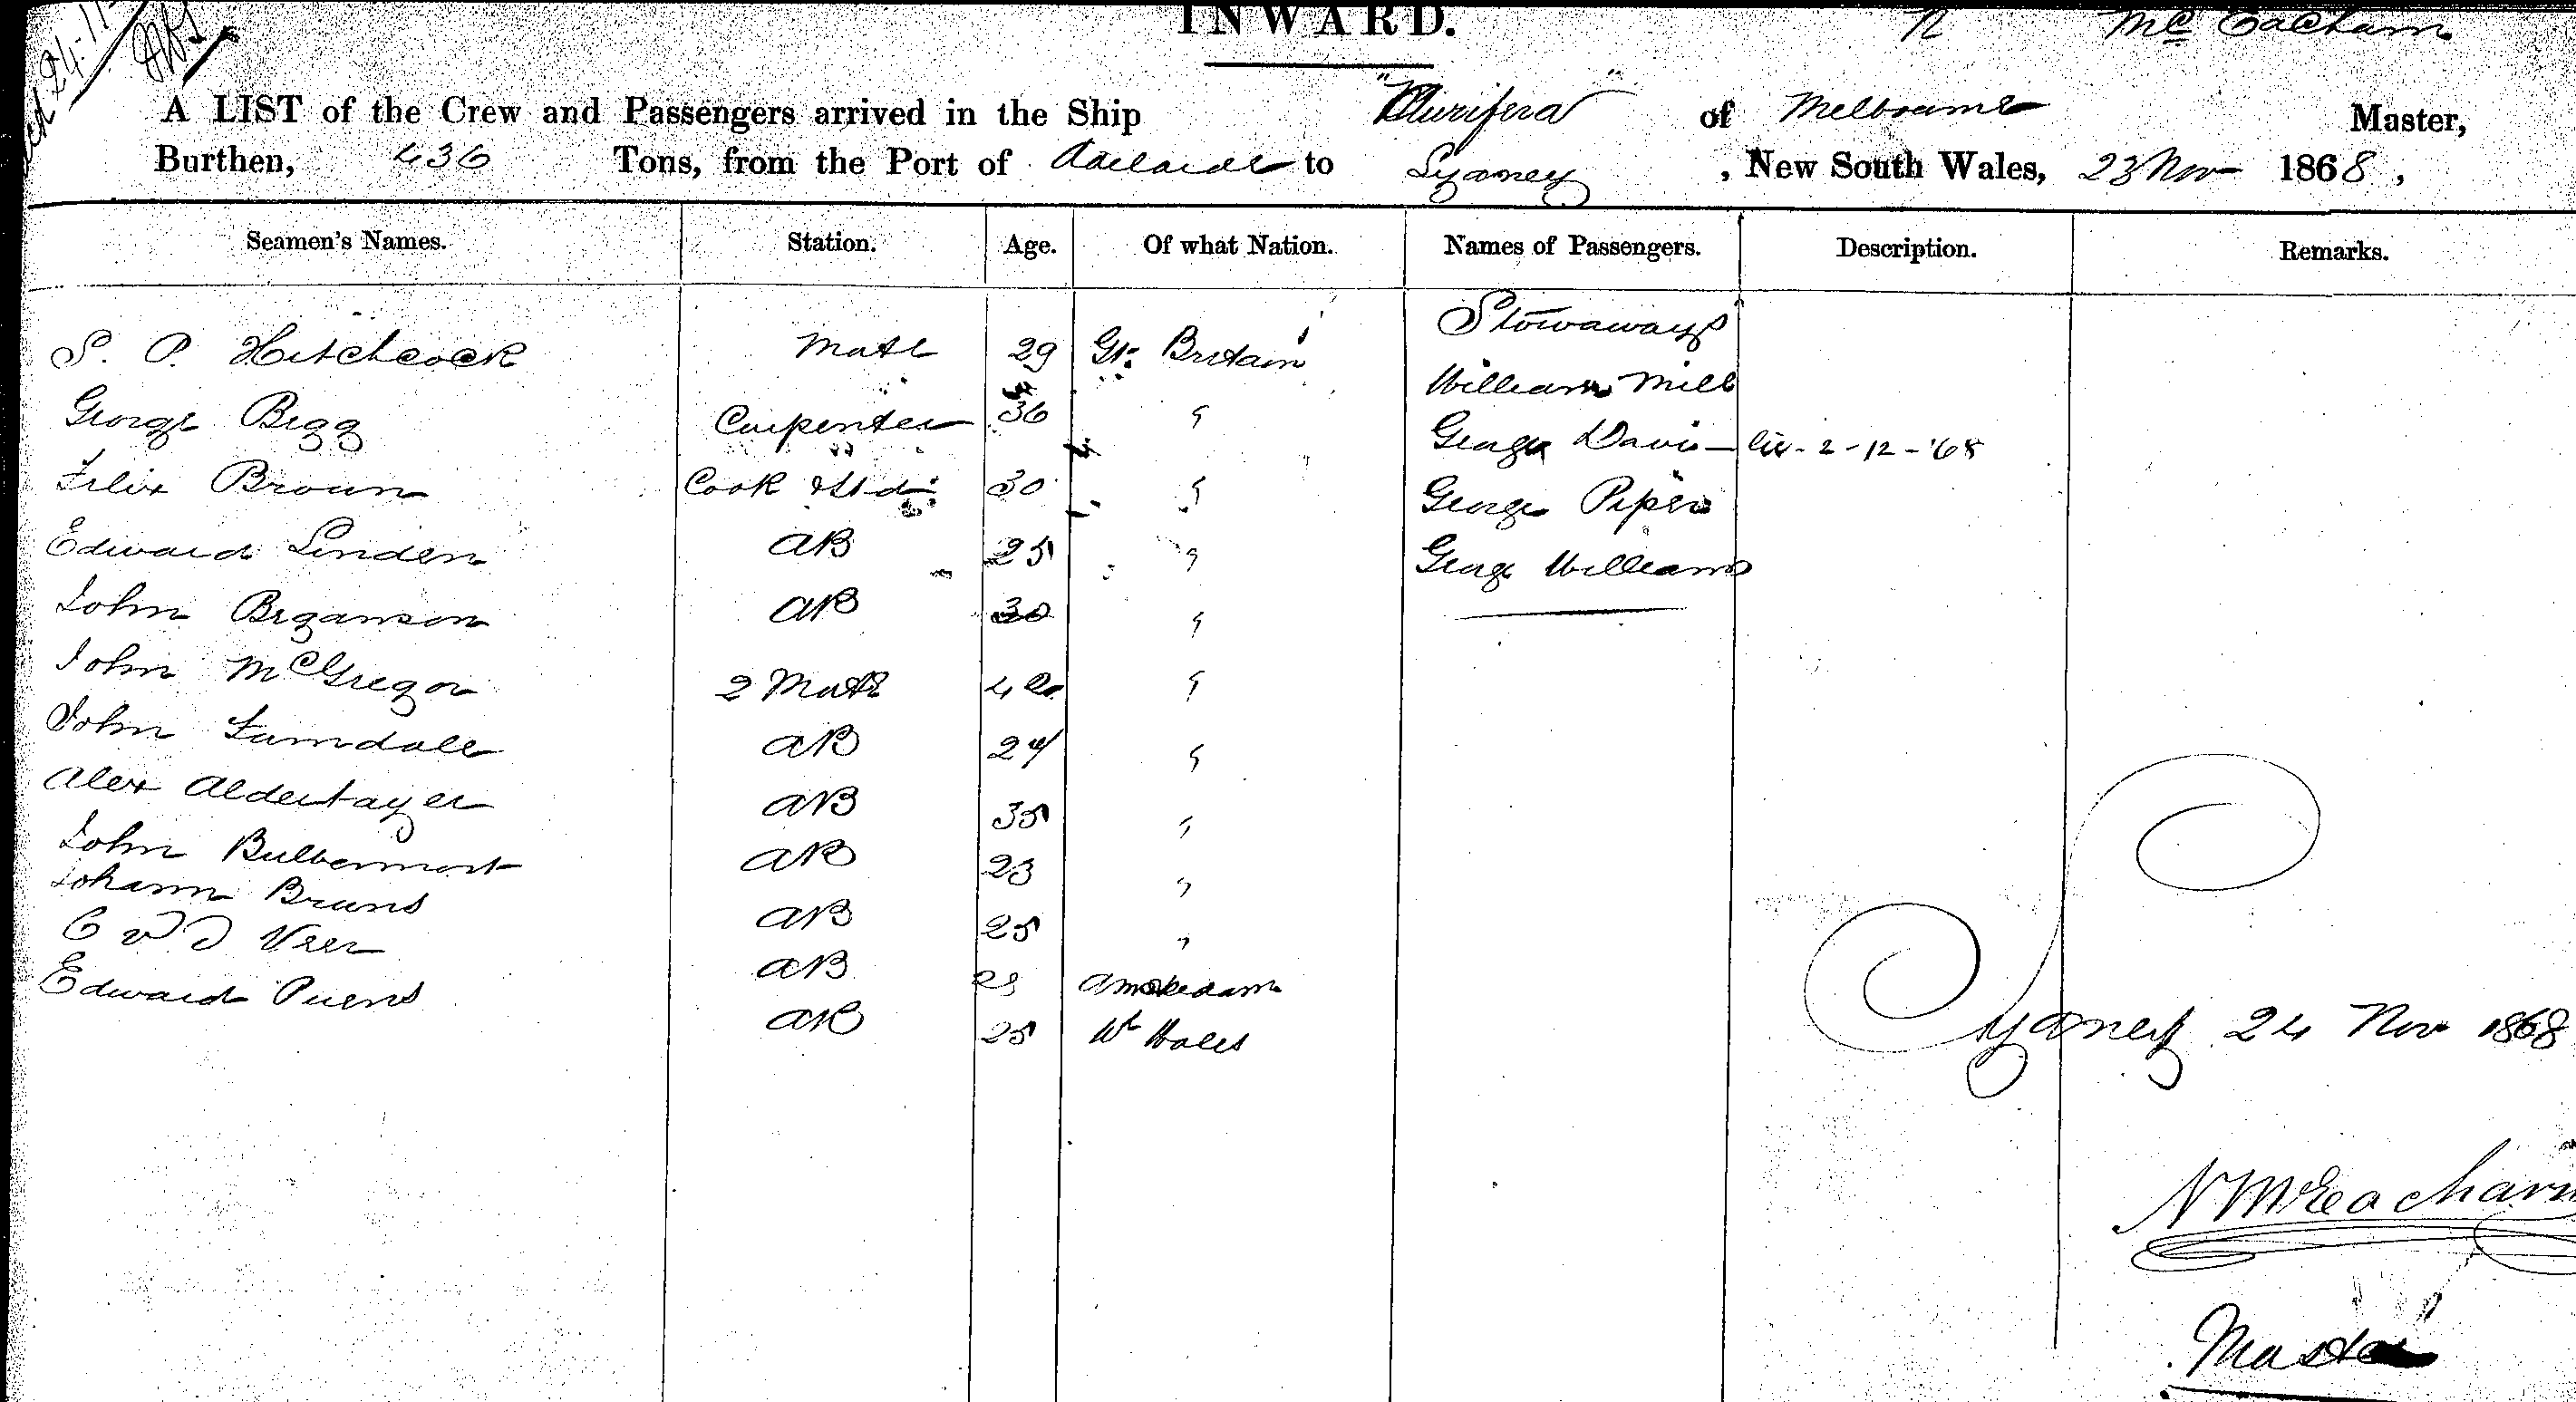 INWARD.
N McEacham
A LIST of the Crew and Passengers arrived in the Ship of Melbourne Master,
Burthen, 436 Tons, from the Port of Adelaide to Sydney, New South Wales, 23 Nov 1868,
Seamen's Names. Station. Age. Of what Nation. Names of Passengers. Description. Remarks.
Stowaways
S. P. Hitchcock Mate 29 Gt. Britain William Mill
George Begg Carpenter 36 " George Davis - 2-12-'68
Felix Broun Cook & Std 30 " George Piper
Edward Linden AB 25 " George Williams
John AB 30 "
John McGregor 2 Mate "
John AB 24 "
Alex AB 35 "
John AB 23 "
Johann Bruns AB 25 "
C v D Veer AB Amsterdam
Edward AB 25 Wales
Sydney 24 Nov 1868
N McEacharn
Master